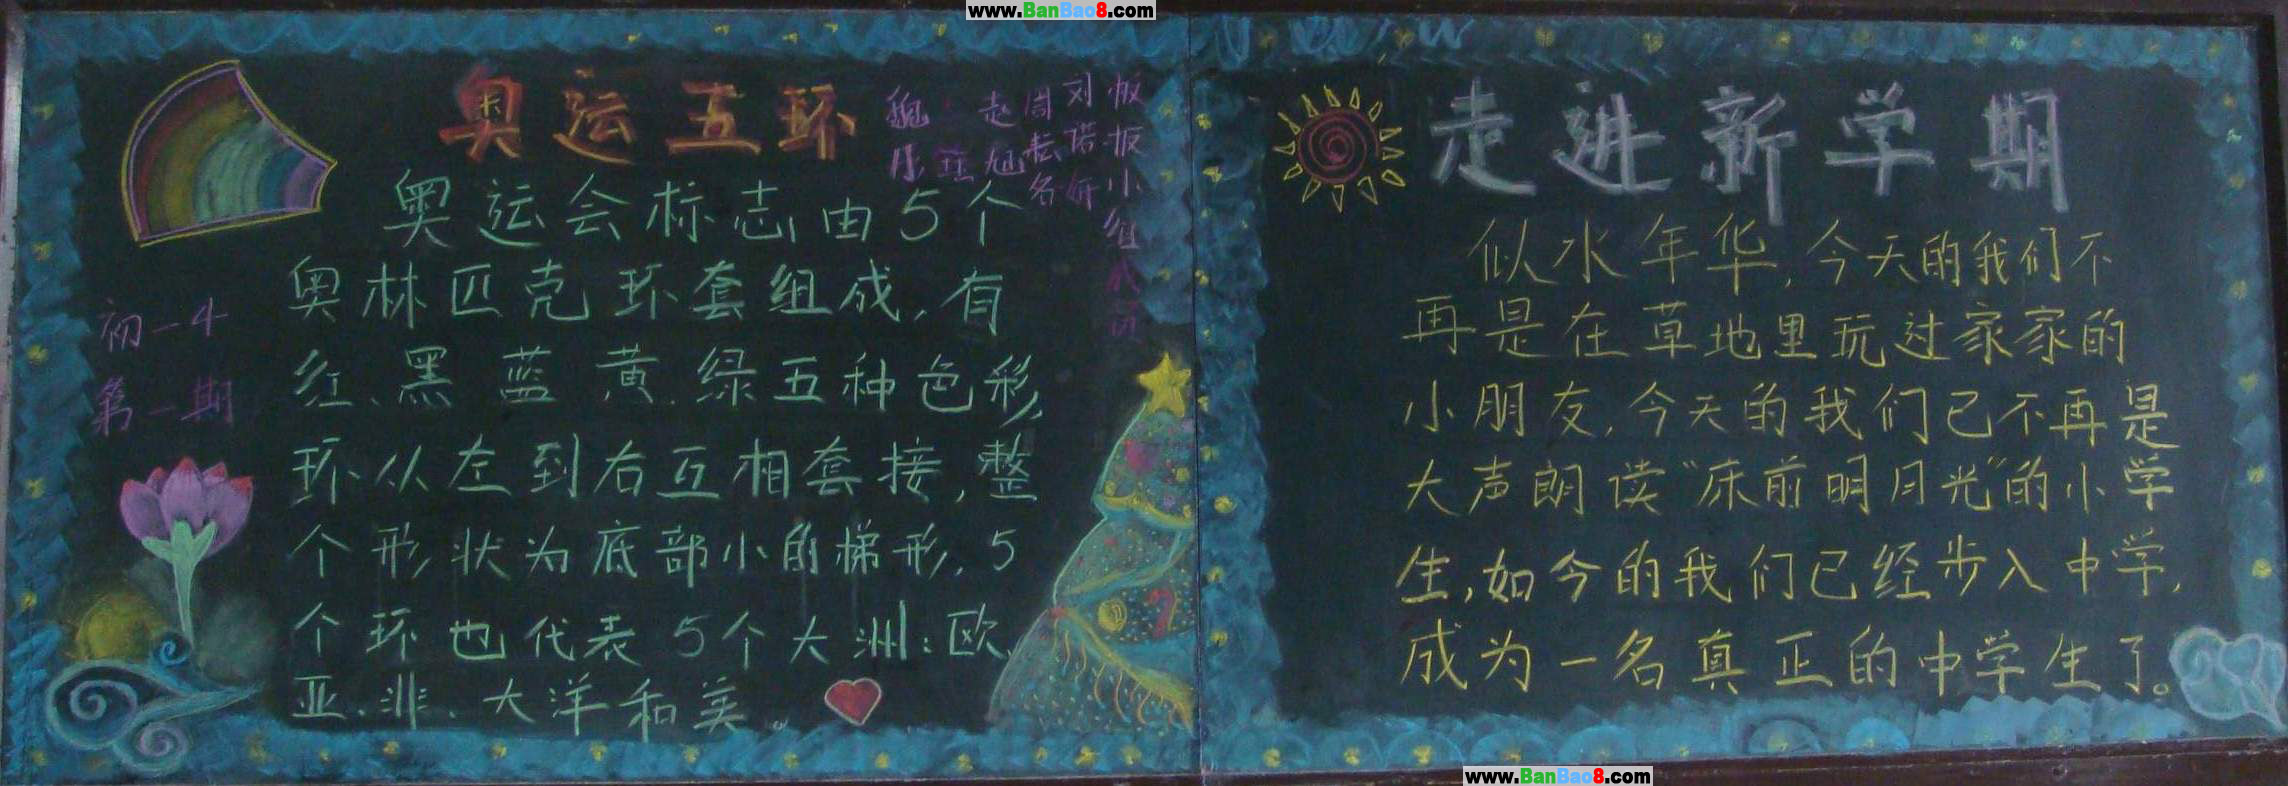 www.BanBao8.com
奥运五环
奥运会标志由5个
奥林匹克环套组成,有
红、黑 蓝 黄.绿五种色彩,
环从左到右互相套接,整
个形状为底部小的梯形.5
个环也代表5个大洲:欧、
亚、非、大洋和美
板报小组成员
刘诺妍
周耘名
赵旭
魏
初一4
第一期
走进新学期
似水年华,今天的我们不
再是在草地里玩过家家的
小朋友,今天的我们已不再是
大声朗读"床前明月光"的小学
生,如今的我们已经步入中学,
成为一名真正的中学生了。
www.BanBao8.com